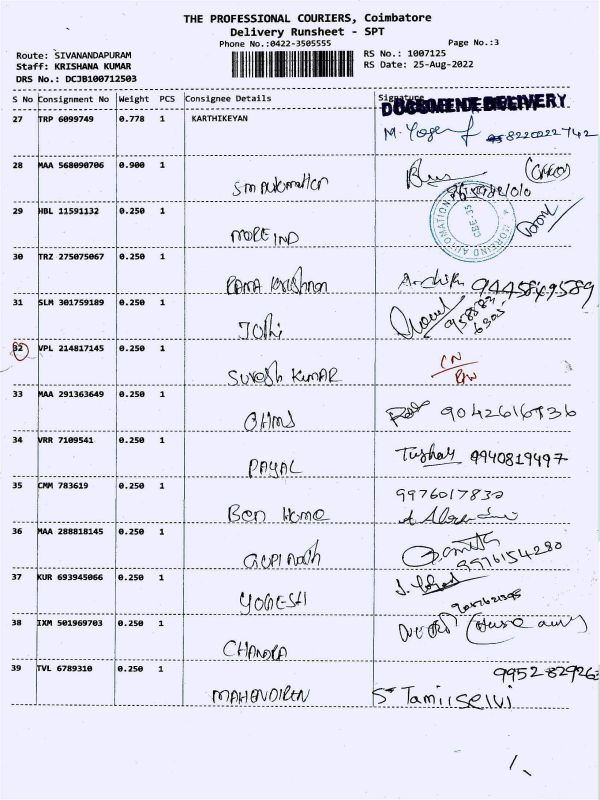 THE PROFESSIONAL COURIERS, Coimbatore
Delivery Runsheet - SPT
Phone No.:0422-3505555 Page No.:3
Route: SIVANANDAPURAM RS No.: 1007125
Staff: KRISHANA KUMAR RS Date: 25-Aug-2022
DRS No.: DCJB100712503
S No Consignment No Weight PCS Consignee Details Signature
DOCUMENT DELIVERY
27 TRP 6099749 0.778 1 KARTHIKEYAN
M. Yoge 822022742
28 MAA 568090706 0.900 1
Sm Automation
29 HBL 11591132 0.250 1
MOREIND AUTOMATION CBE-35
MORE IND
30 TRZ 275075067 0.250 1
RAMA Krishnan 9445849589
31 SLM 301759189 0.250 1
JOthi
32 VPL 214817145 0.250 1
SURESh KUMAR
33 MAA 291363649 0.250 1
OHMS 9042616736
34 VRR 7109541 0.250 1
PAYAL Tushar 9940819497
35 CMM 783619 0.250 1
9976017830
Bon Home
36 MAA 288818145 0.250 1
GOPI Nath 9976154280
37 KUR 693945066 0.250 1
YOGESH
38 IXM 501969703 0.250 1
CHANDRA
39 TVL 6789310 0.250 1
MAHENDIREN S. Tamilselvi